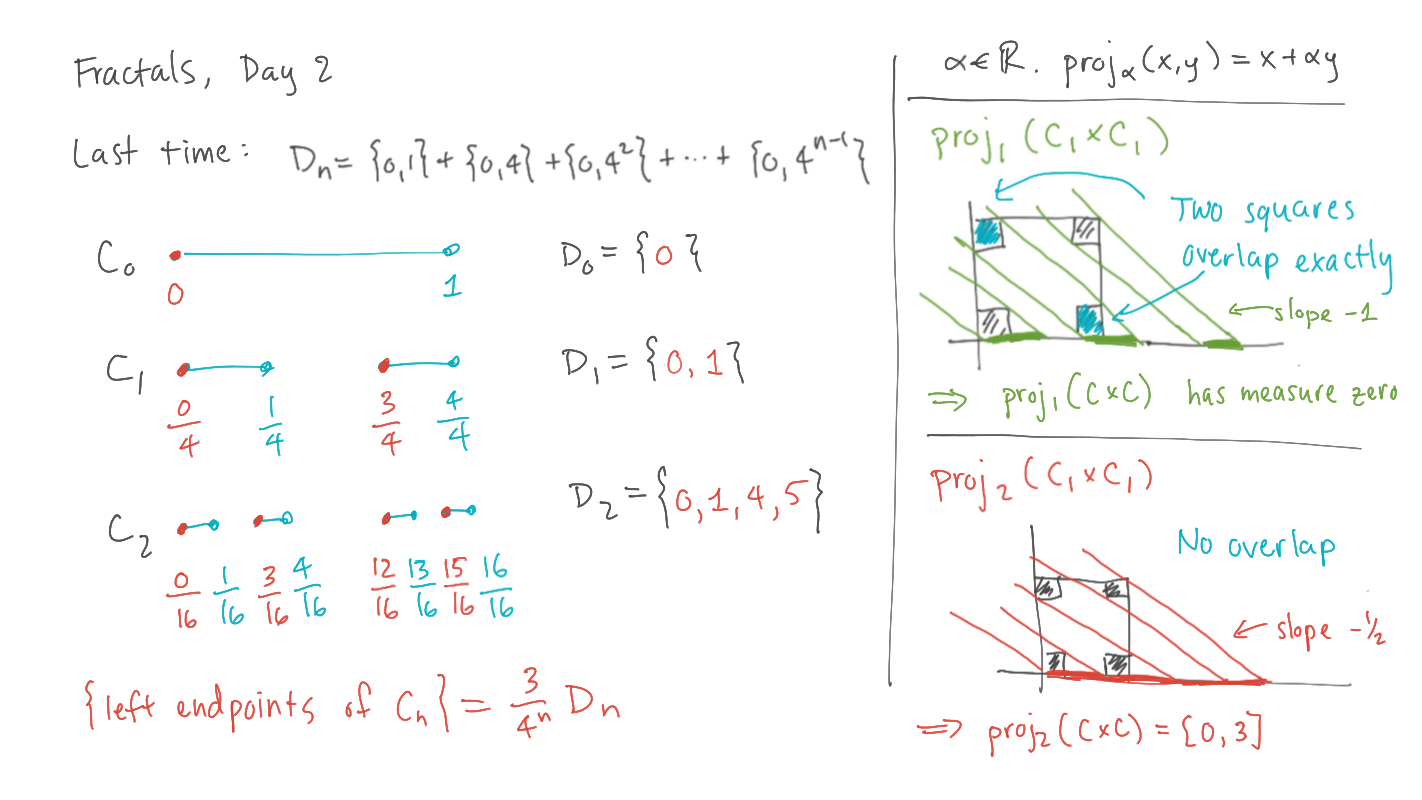 Fractals, Day 2
Last time: Dₙ = {0,1} + {0,4} + {0,4²} + ⋯ + {0, 4ⁿ⁻¹}
C₀
0 1
D₀ = {0}
C₁
0/4 1/4 3/4 4/4
D₁ = {0, 1}
C₂
0/16 1/16 3/16 4/16 12/16 13/16 15/16 16/16
D₂ = {0, 1, 4, 5}
{left endpoints of Cₙ} = 3/4ⁿ Dₙ
α ∈ ℝ. proj_α(x,y) = x + αy
proj₁(C₁×C₁)
Two squares
overlap exactly
← slope -1
⇒ proj₁(C×C) has measure zero
proj₂(C₁×C₁)
No overlap
← slope -½
⇒ proj₂(C×C) = [0,3]